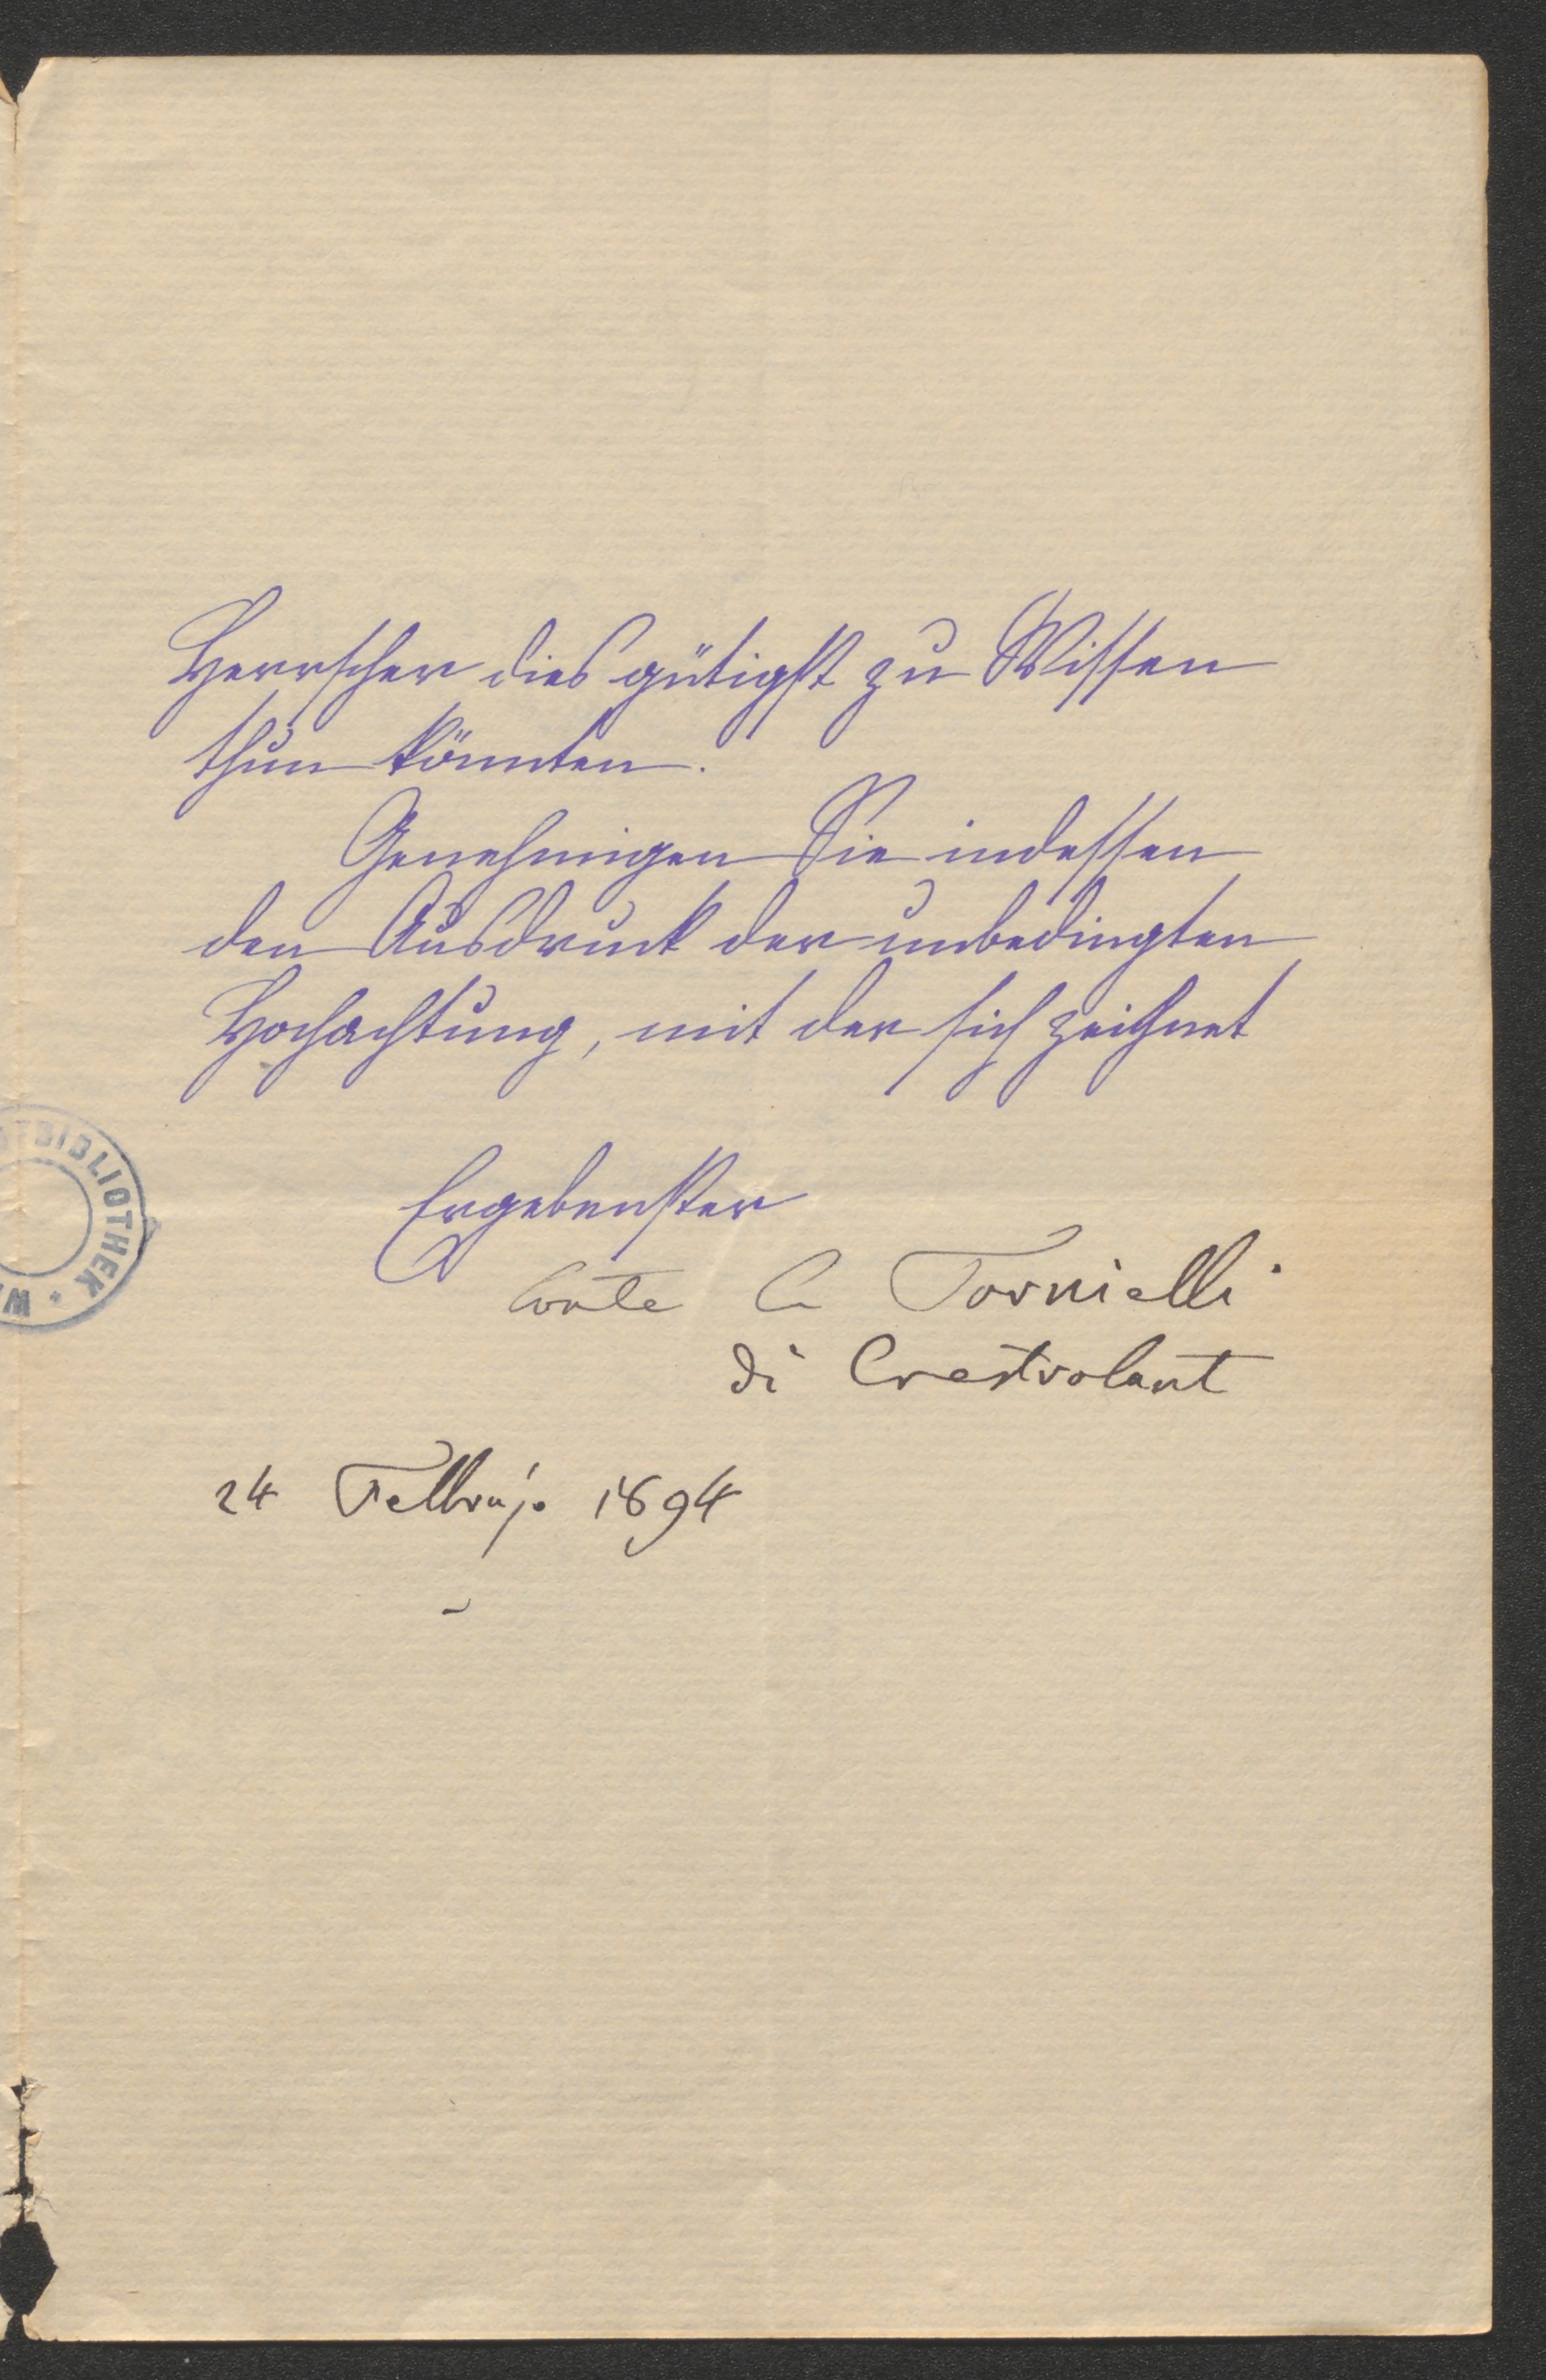 Herrscher dies gütigst zu Wissen
thun könnten.
Genehmigen Sie indessen
den Ausdruck der unbedingten
Hochachtung, mit der sich zeichnet
Ergebenster
Conte C Tornielli
di Crestvolant
24 Febbrajo 1894
BIBLIOTHEK